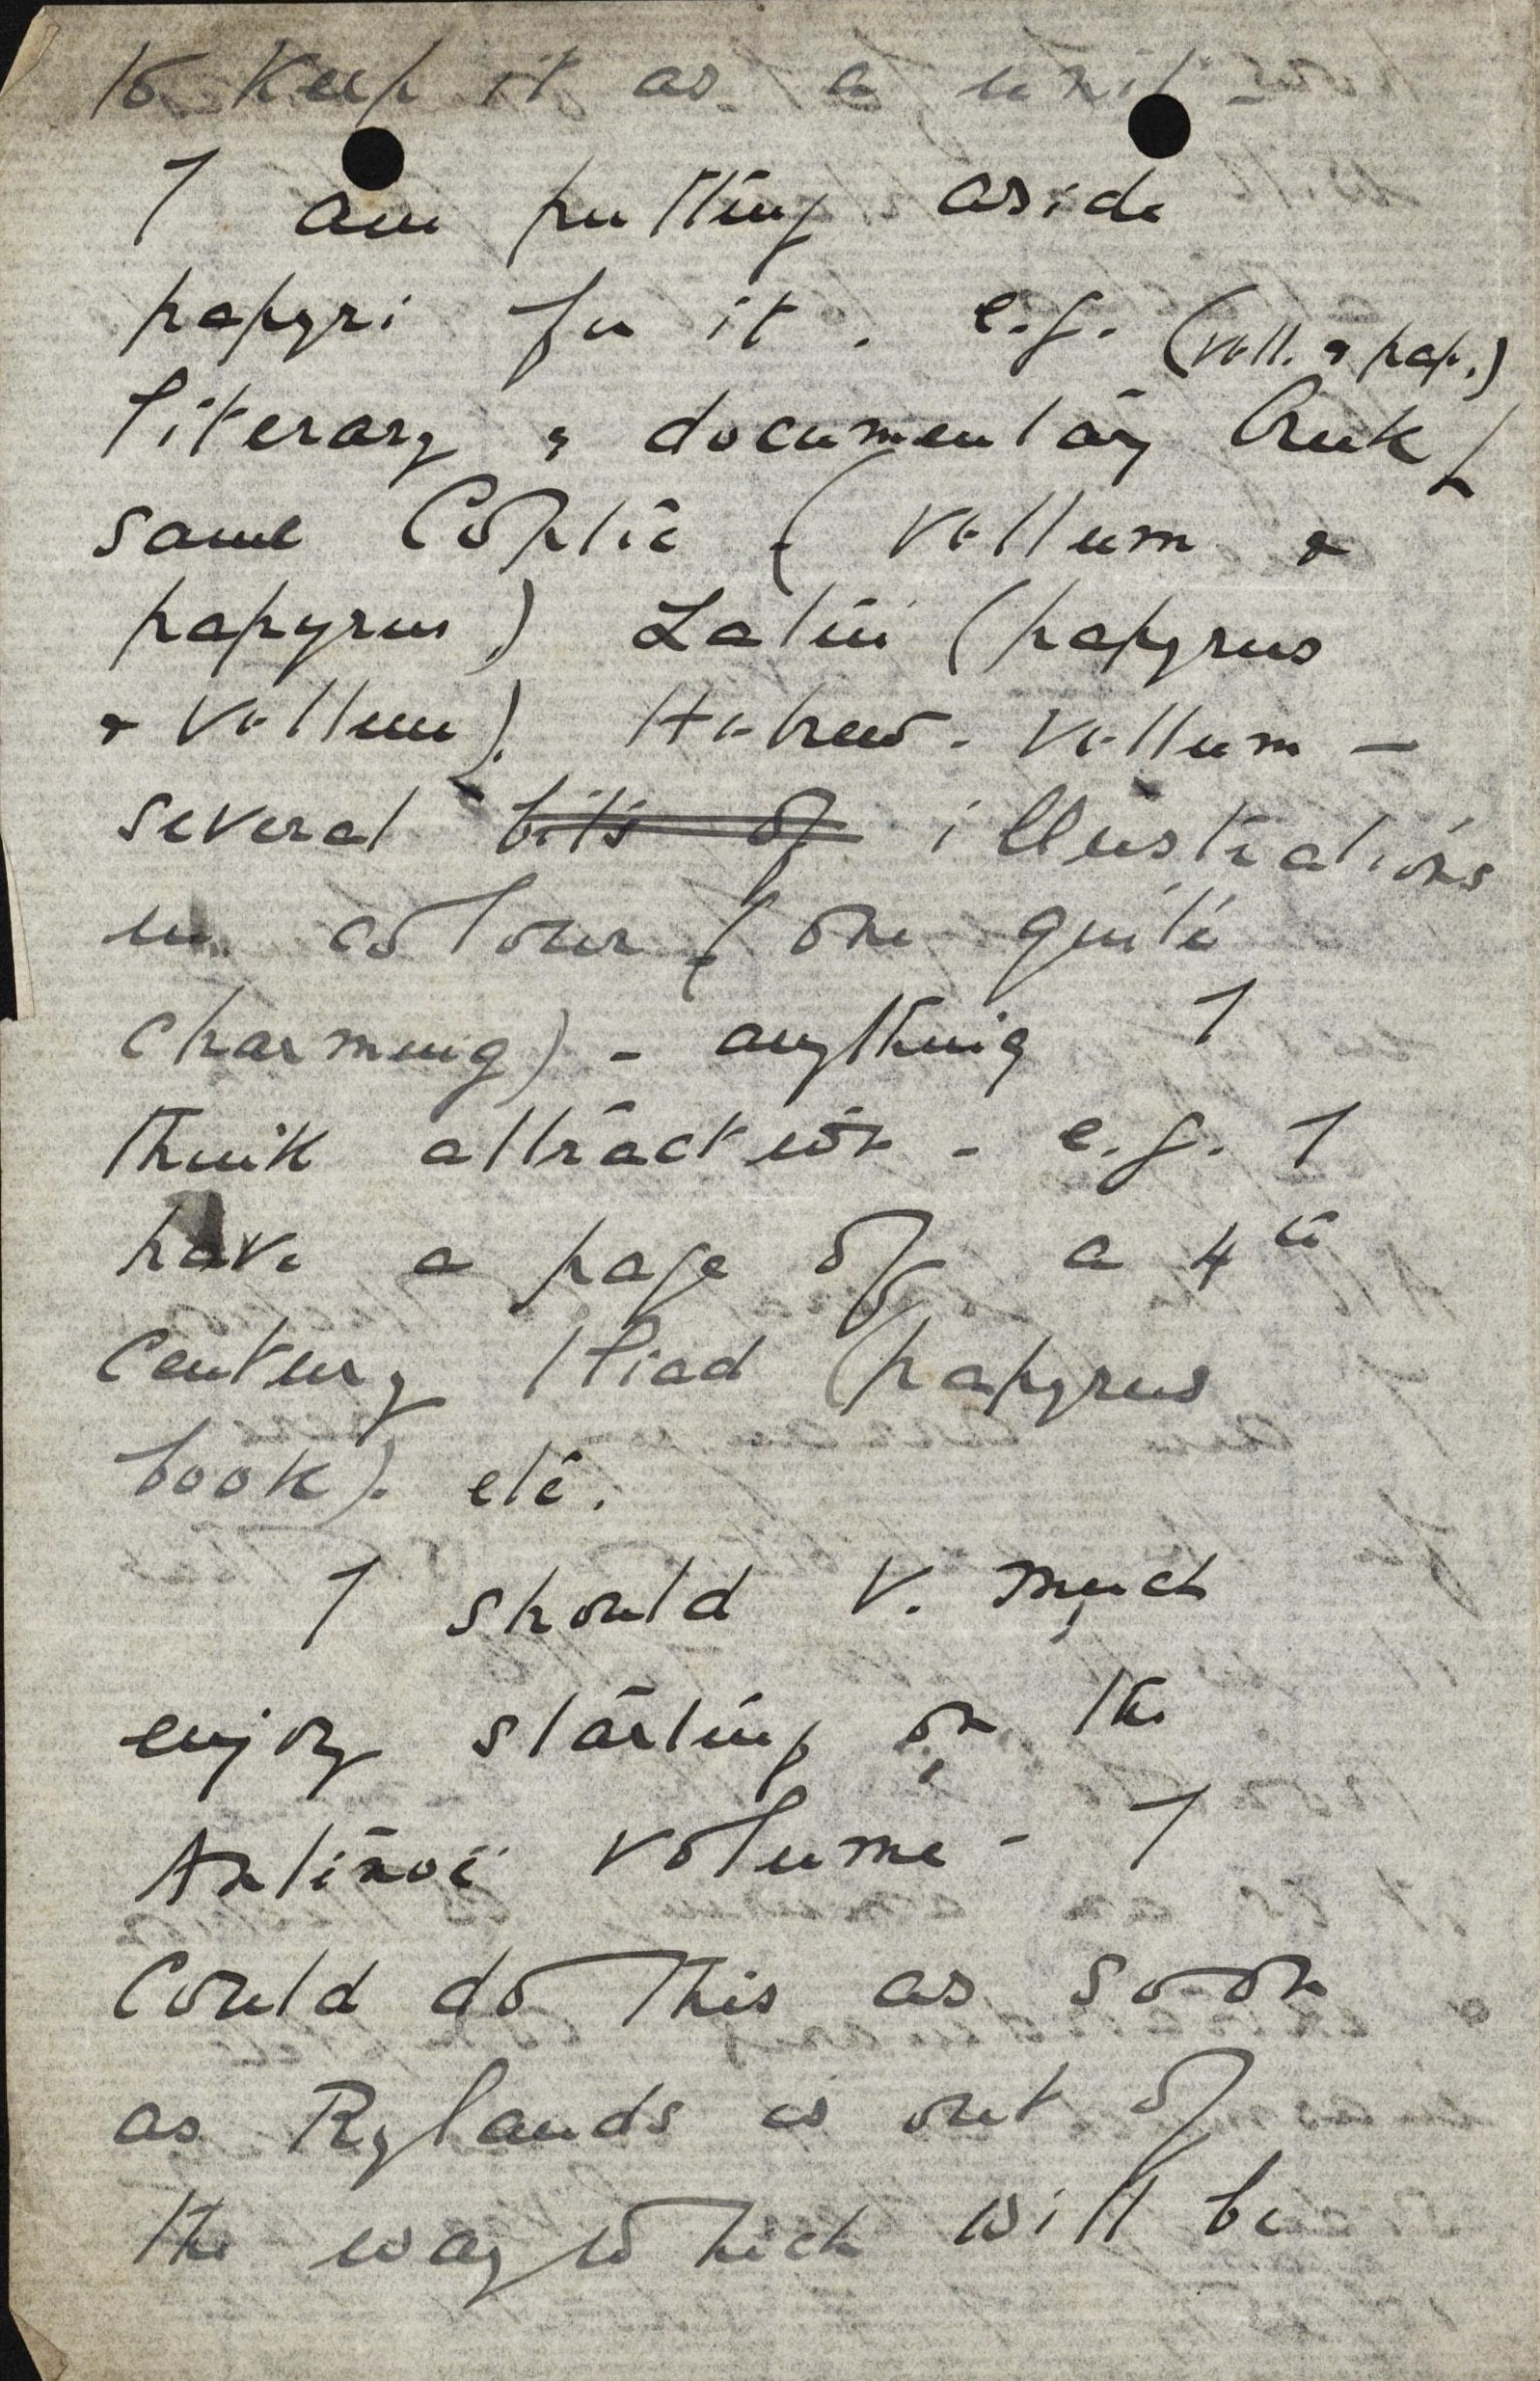 to keep it as a unit -
I am putting aside
papyri for it. e.g. (vell. & pap.)
literary & documentary Greek
some Coptic - (vellum &
papyrus) Latin (papyrus
& vellum). Hebrew - vellum -
several bits of illustrations
in colour - (one quite
charming) - anything I
think attractive - e.g. I
have a page of a 4th
century Iliad (papyrus
book). etc.
I should v. much
enjoy starting on the
Antinoë volume - I
could do this as soon
as Rylands is out of
the way which will be